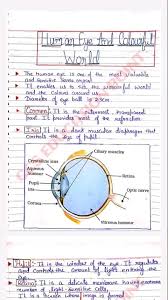 Human Eye And Colourful
World
The human eye is one of the most valuable
and sensitive sense organs
It enables us to see the wonderful world
and the colours around us
Diameter of eye ball is 2.3cm
Cornea: It is the outermost, transparent
part. It provides most of the refraction
Iris: It is a dark muscular diaphragm that
controls the
Ciliary muscles
Crystalline lens
Aqueous humour
Pupil
Iris
Cornea
Retina
Optic nerve
Vitreous humour
Pupil: It is the window of the eye. It regulates
and controls the amount of light entering the
eye.
Retina: It is a delicate membrane having enormous
number of light-sensitive cells.